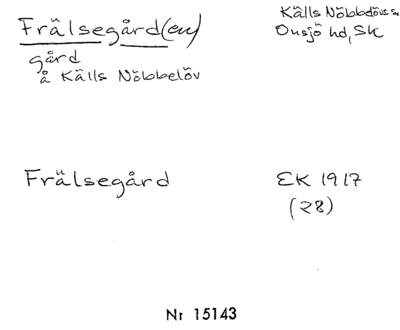 Frälsegård(en)
Källs Nöbbelövs sn
Onsjö hd, Sk
gård
å Källs Nöbbelöv
Frälsegård
EK 1917
(28)
Nr 15143